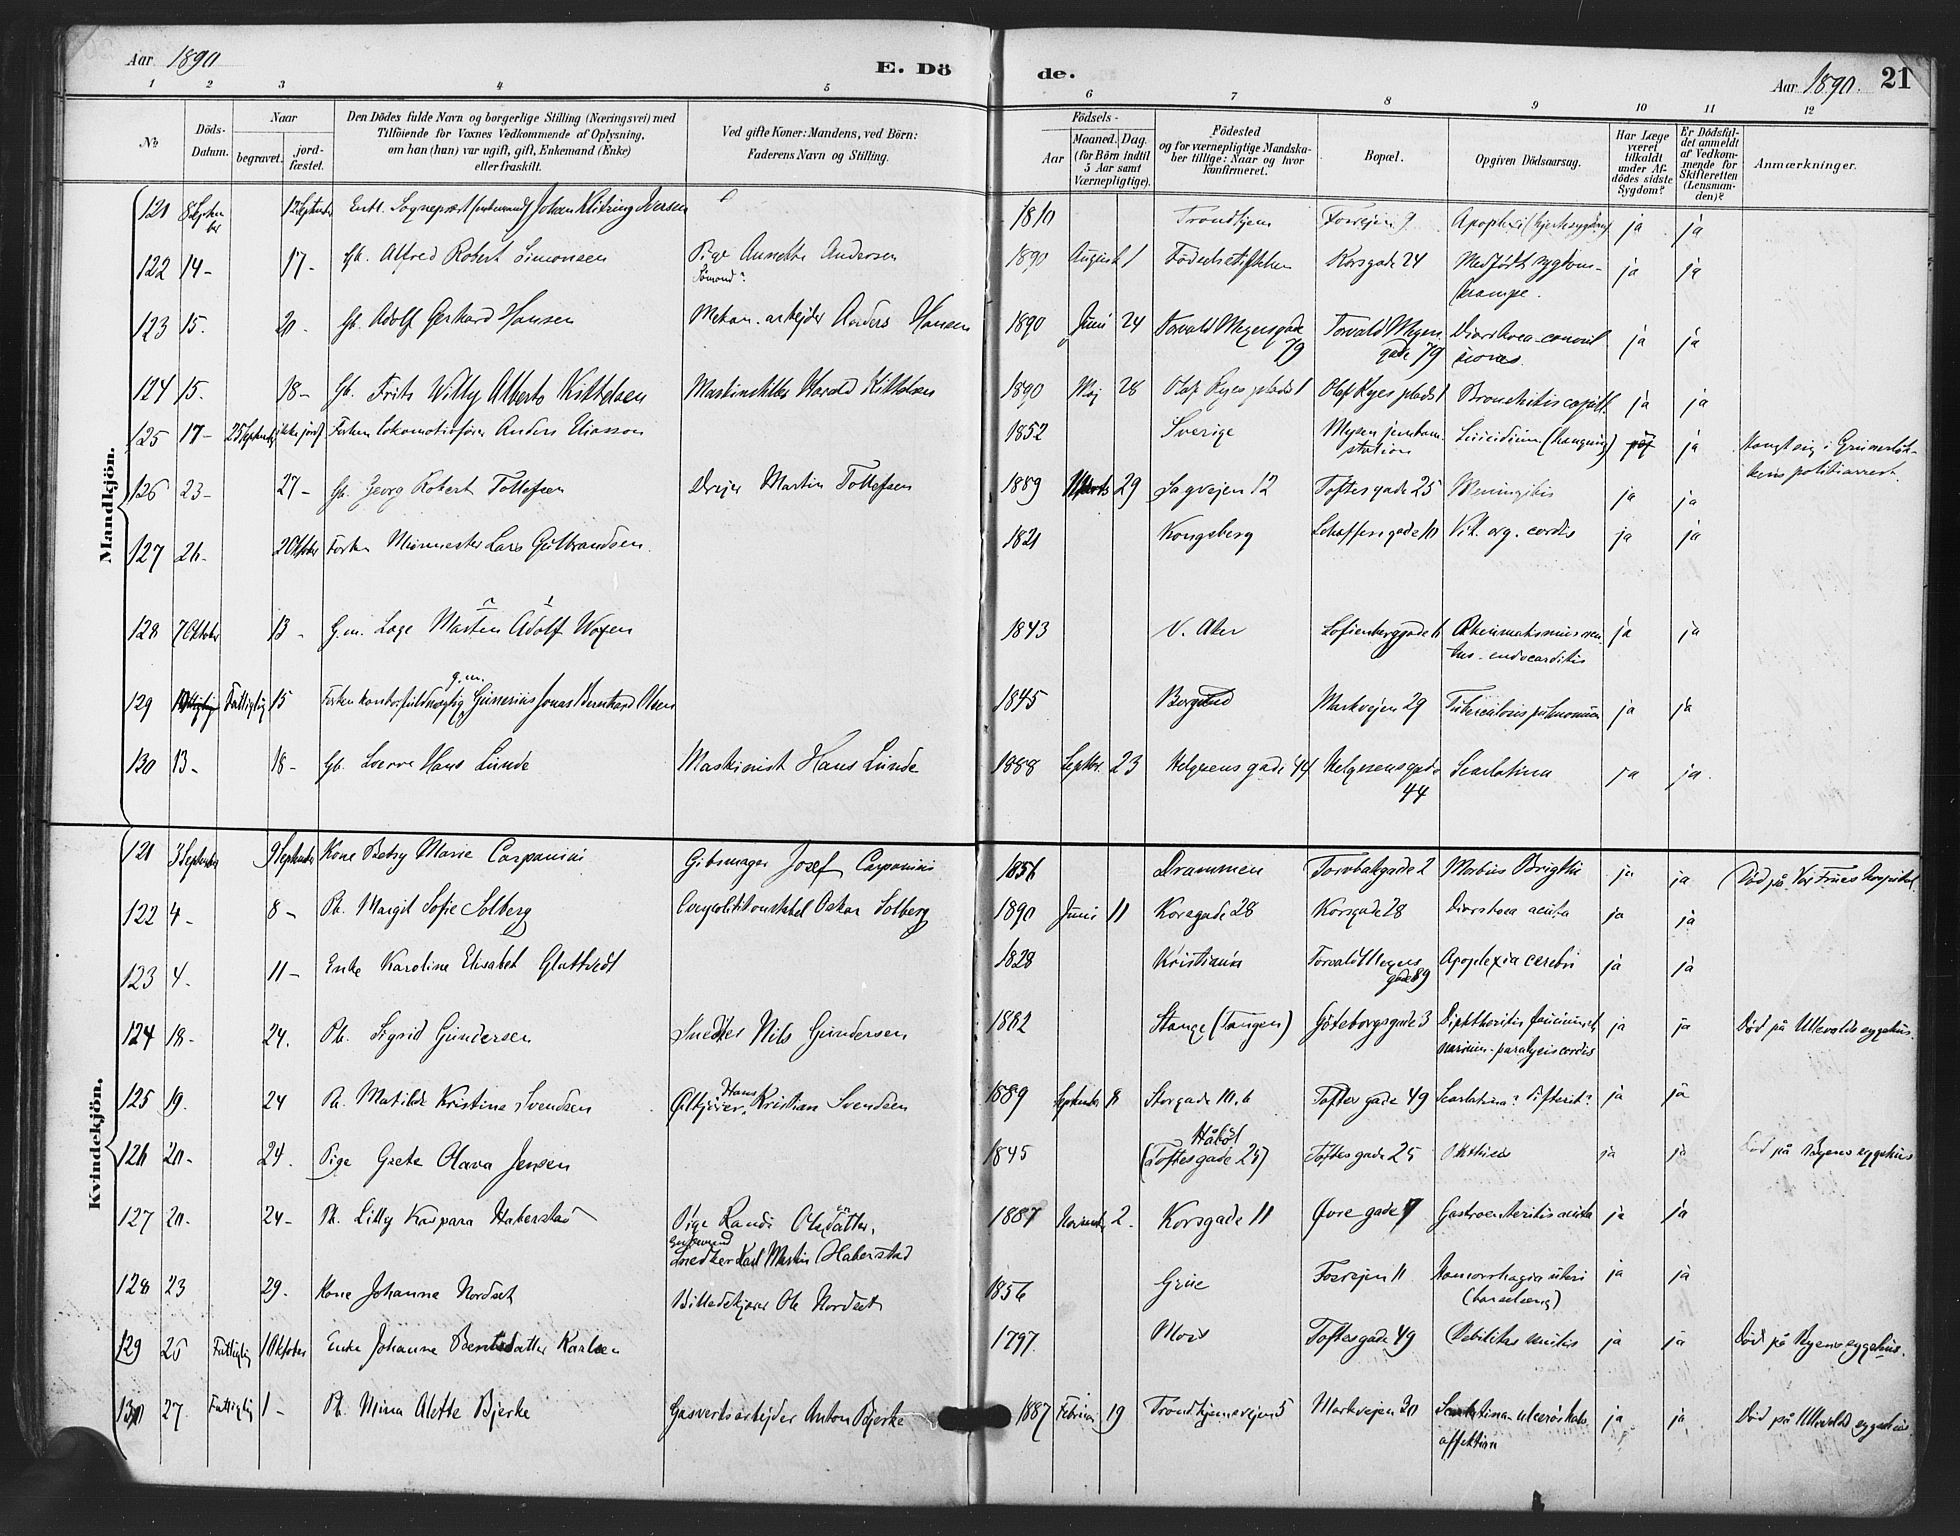 Aar 1890
E. Dö
de.
Aar 1890. 21
1 2 3 4 5 6 7 8 9 10 11 12
No
Döds-Datum.
Naar
begravet.
jord-fæstet.
Den Dödes fulde Navn og borgerlige Stilling (Næringsvei) med
Tilföiende for Voxnes Vedkommende af Oplysning,
om han (hun) var ugift, gift, Enkemand (Enke)
eller fraskilt.
Ved gifte Koner: Mandens, ved Börn:
Faderens Navn og Stilling.
Födsels-
Aar
Maaned. Dag.
(for Börn indtil
5 Aar samt
Værnepligtige).
Födested
og for værnepligtige Mandska-
ber tillige: Naar og hvor
konfirmeret.
Bopæl.
Opgiven Dödsaarsag.
Har Læge
været
tilkaldt
under Af-
dödes sidste
Sygdom?
Er Dödsfal-
det anmeldt
af Vedkom-
mende for
Skifteretten
(Lensman-
den)?
Anmærkninger.
Mandkjön.
121 8 September 12 September Sognepræst Johan Iversen 1810 Trondhjem Fossvejen 9 ja ja
122 14- 17- Gb. Alfred Robert Simonsen Pige Annette Andersen 1890 August 1 Fødselsstiftelsen Korsgade 24 Medfødt sygdom-krampe. ja ja
123 15. 20- Gb. Adolf Gerhard Hansen Mekan. arbejder Anders Hansen 1890 Juni 24 Torvald Meyersgade 79 Torvald Meyersgade 79 Diarrhoea-convulsiones ja ja
124 15. 18- Gb. Frits Willy Alberto Kittelsen Harald Kittelsen 1890 Maj 28 Olaf Ryes plads 1 Olaf Ryes plads 1 Bronchitis capill. ja ja
125 17- 25 September ikke jordf. Forhen lokomotivfører Anders Eliasson 1852 Sverige Mysen jernban. station Suicidium (hængning) ja Hængt sig i Grünerløkkens politiarrest.
126 23- 27- Gb. Georg Robert Tollefsen Drejer Martin Tollefsen 1889 Marts 29 Sagvejen 12 Toftesgade 25 Meningitis ja ja
127 26. 2 Oktober Forhen Murmester Lars Gulbrandsen. 1821 Kongsberg Schous gade 10 Vit. org. cordis ja ja
128 7 Oktober 13- G.m. Martin Adolf Woxen 1843 V. Aker Sofienberggade 6 Rheumatismus endocarditis ja ja
129 Fattiglig 15 Forhen kontorfuldmægtig g.m. Gunerius Jonas Bernhard Olsen 1845 Markvejen 29 Tuberculosis pulmonum ja ja
130 13- 18- Gb. Sverre Hans Lunde Maskinist Hans Lunde 1888 Septbr. 23 Helgesens gade 44 Helgesensgade 44 Scarlatina ja ja.
Kvindekjön.
121 3 September 9 September Kone Betsy Marie Caspanini Gibsmager Josef Caspanini 1856 Drammen Torvbakgade 2 Morbus Brigthi ja ja Død på Vor Frues hospital.
122 4- 8- Pb. Margit Sofie Solberg Oskar Solberg 1890 Juni 11 Korsgade 28 Korsgade 28 Diarrhoea acuta ja ja
123 4. 11- Enke Karoline Elisabet Glattvedt 1828 Kristiania Torvald Meyers gade 89 Apoplexia cerebri ja ja
124 18- 24. Pb. Sigrid Gundersen Snedker Nils Gundersen 1882 Stange (Tangen) Göteborgsgade 3 Diphtheritis faucium et narium-paralysis cordis ja ja Død på Ullevolds sygehus.
125 19. 24 Pb. Matilde Kristine Svendsen Ølkjører Hans Kristian Svendsen 1889 September 8 Storgade 10, 6 Toftes gade 49 Scarlatina? Difterit? ja ja
126 20- 24. Pige Grete Olava Jensen 1845 Håbøl (Toftesgade 25) Toftesgade 25 ja ja Død på Byens sygehus
127 20. 24- Pb. Lilly Kaspara Haberstad Pige Randi Olsdatter, Snedker Karl Martin Haberstad 1887 November 2. Korsgade 11 Øvre gade 7 Gastroenteritis acuta ja ja
128 23 29. Kone Johanne Nordset Ole Nordset 1856 Grue Fossvejen 11 Hæmorrhagia uteri (barselseng) ja ja
129 25 Fattiglig 1 Oktober Enke Johanne Berntsdatter Karlsen 1797 Moss Toftesgade 49 Debilitas senilis ja ja Død på Byens sygehus.
130 27. Fattiglig 1- Pb. Mina Alette Bjerke Gasverksarbejder Anton Bjerke 1887 Februar 19 Trondhjemsvejen 5 Markvejen 30 Scarlatina affektion ja ja Død på Ullevolds sygehus.